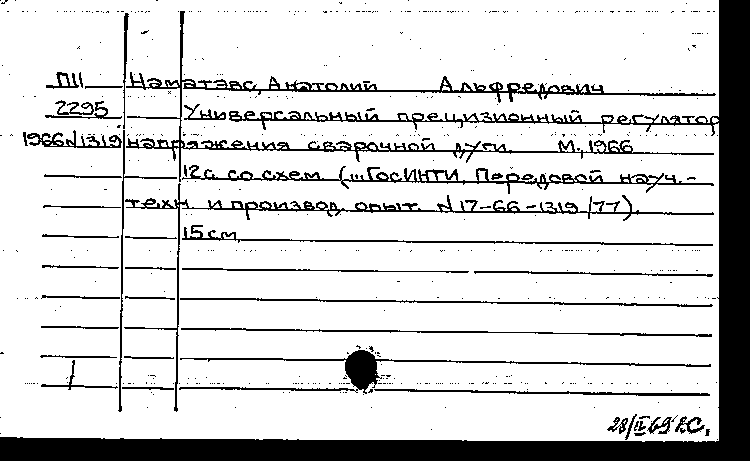 ПII Наматэвс, Анатолий Альфредович
2295 Универсальный прецизионный регулятор
1966N1319 напряжения сварочной дуги. М., 1966
12с. со схем. (...ГосИНТИ, Передовой науч.-
техн. и производ. опыт. N 17-66-1319/77).
15 см.
28/II 69 г.